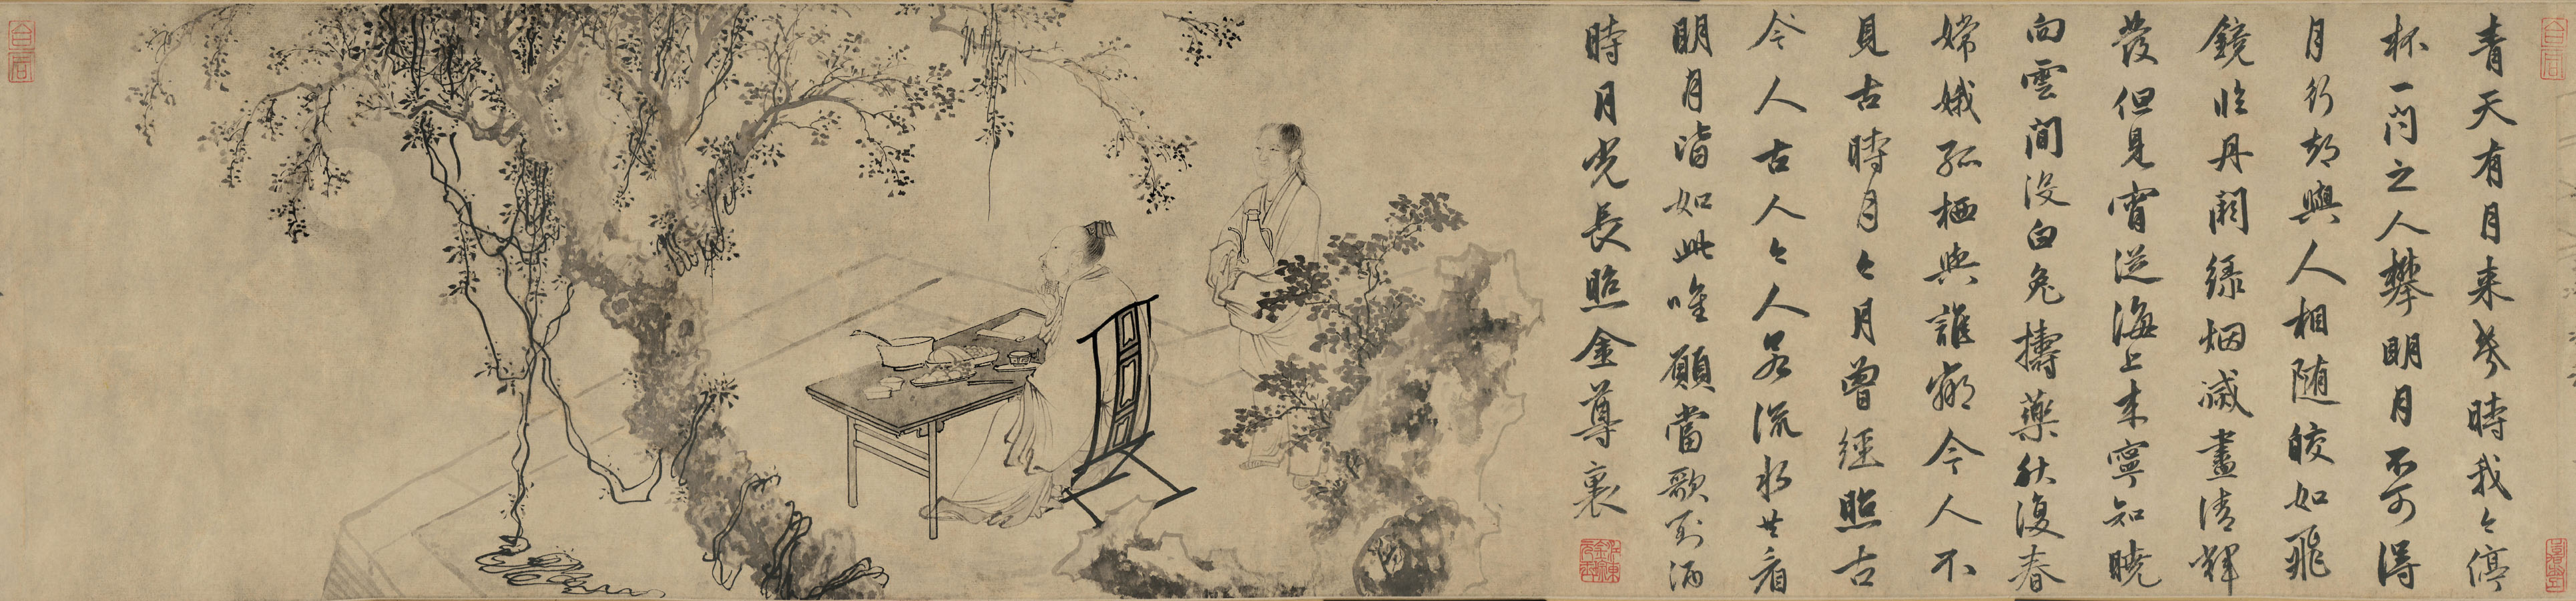 青天有月来幾時我今停
杯一問之人攀明月不可得
月行却與人相随皎如飛
鏡臨丹闕緑烟滅盡清輝
發但見宵從海上来寧知曉
向雲間没白兔擣藥秋復春
嫦娥孤栖與誰鄰今人不
見古時月今月曾經照古
今人古人今人若流水共看
明月皆如此唯願當歌對酒
時月光長照金尊裏